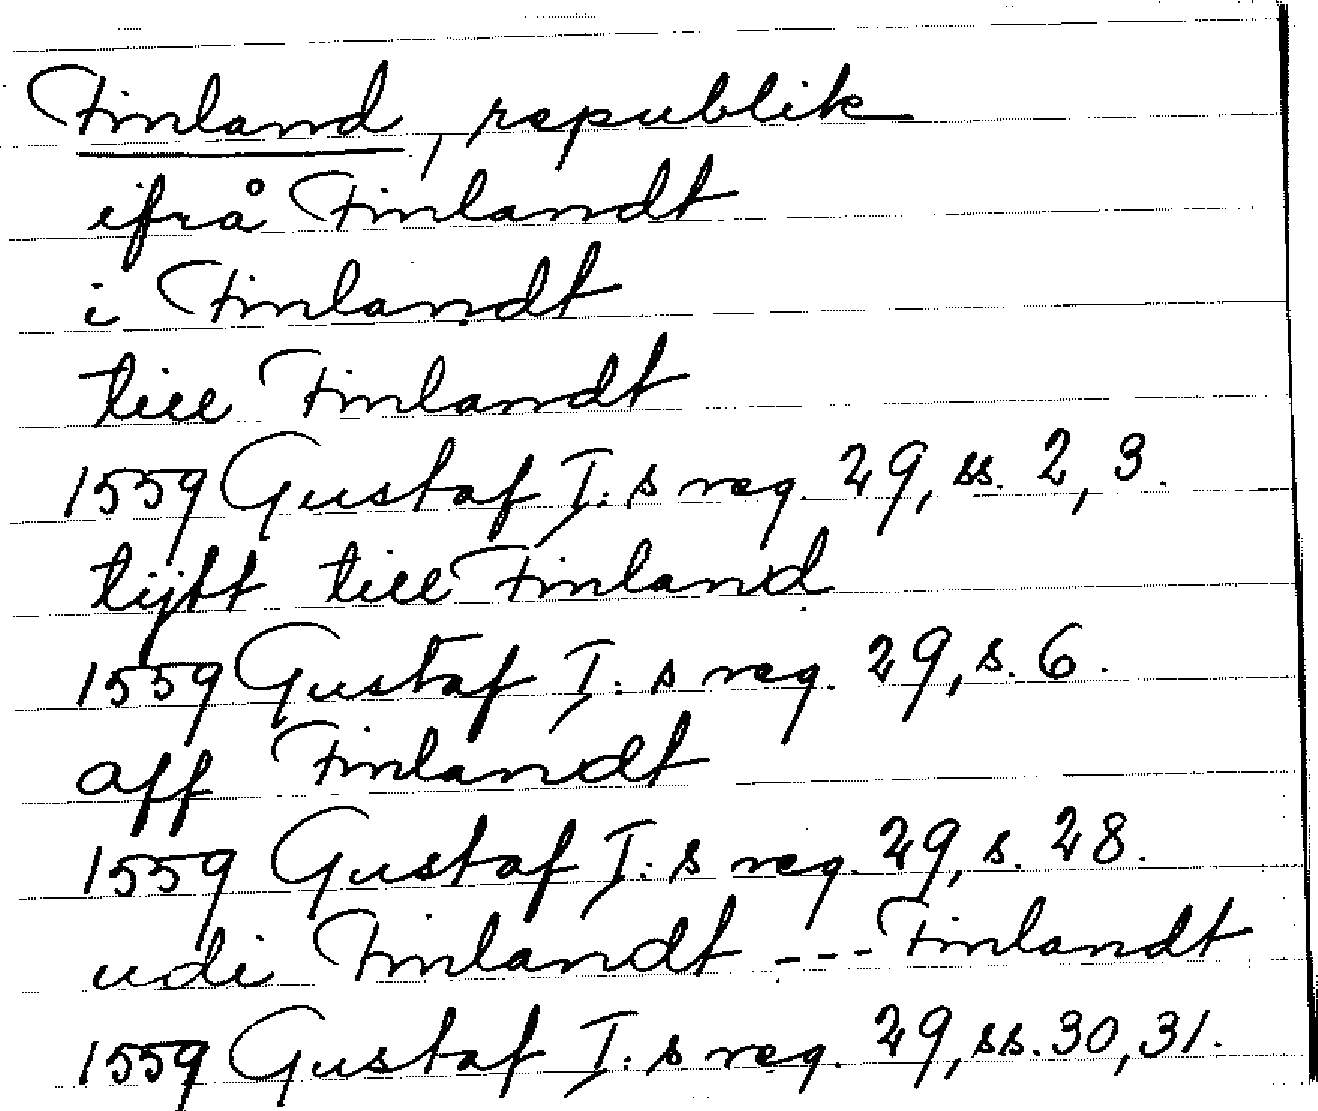 Finland, republik
ifrå Finlandt
i Finlandt
till Finlandt
1559 Gustaf I:s reg. 29, ss. 2, 3.
tijtt till Finland
1559 Gustaf I:s reg. 29, s. 6.
aff Finlandt
1559 Gustaf I:s reg. 29, s. 28.
udi Finlandt --- Finlandt
1559 Gustaf I:s reg. 29, ss. 30, 31.